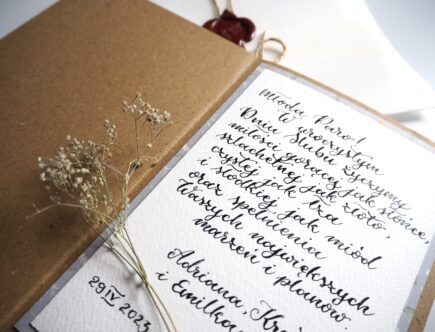 Młoda Paro!
W uroczystym
Dniu Ślubu życzymy
miłości gorącej jak słońce,
szlachetnej jak złoto,
czystej jak łza
i słodkiej jak miód
oraz spełnienia
Waszych największych
marzeń i planów
Adriana,
i Emilka
29 IV 2023